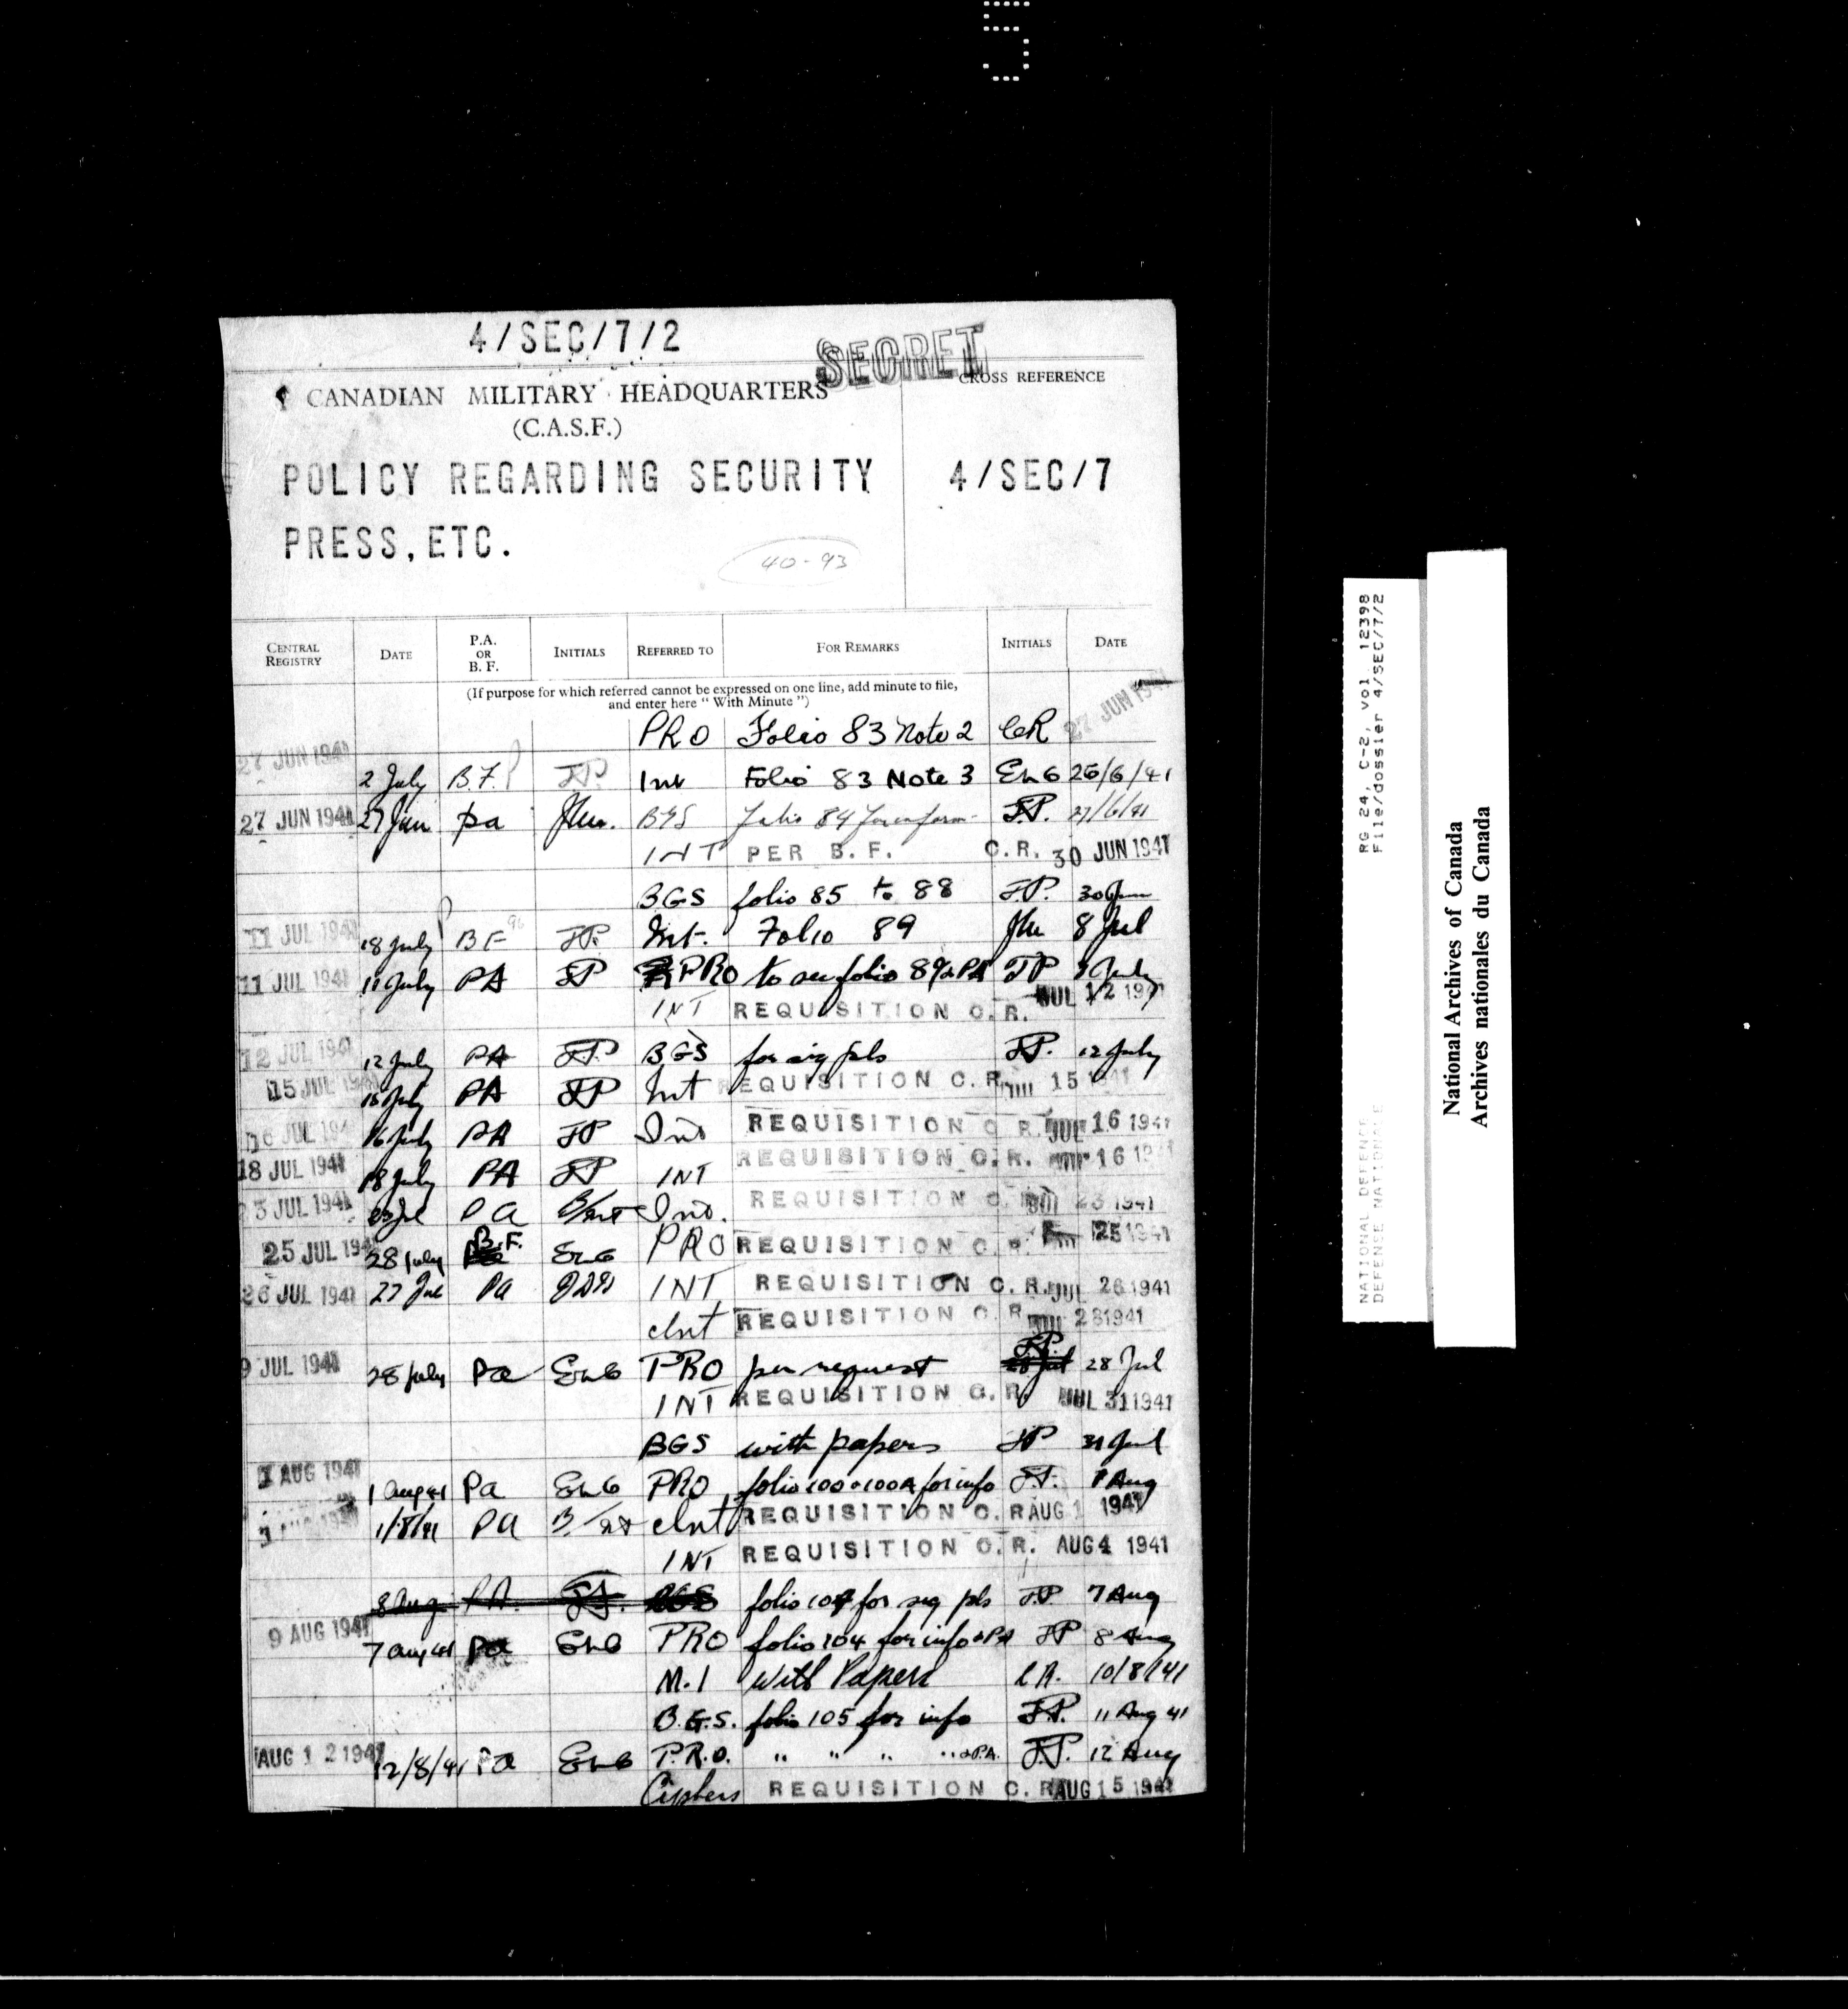 5
4/SEC/7/2
SECRET
CANADIAN MILITARY HEADQUARTERS
(C.A.S.F.)
CROSS REFERENCE
POLICY REGARDING SECURITY
4/SEC/7
PRESS, ETC.
40-93
CENTRAL REGISTRY DATE P.A. OR B. F. INITIALS REFERRED TO FOR REMARKS INITIALS DATE
(If purpose for which referred cannot be expressed on one line, add minute to file,
and enter here " With Minute ")
27 JUN 1941 PRO Folio 83 Note 2 CR 27 JUN 1941
2 July B.F. JP. Int Folio 83 Note 3 EWG 26/6/41
27 JUN 1941 27 Jun pa BGS Folio 84 J.P. 27/6/41
INT PER B. F. C.R. 30 JUN 1941
BGS folio 85 to 88 J.P. 30 Jun
11 JUL 1941 18 July BF 96 JP. Int. Folio 89 8 Jul
11 JUL 1941 11 July PA JP PRO to see folio 89 & PA JP July
INT REQUISITION C.R. JUL 12 1941
12 JUL 1941 12 July PA JP BGS for sig pls JP. 12 July
15 JUL 1941 15 July PA JP Int REQUISITION C.R. JUL 15 1941
16 JUL 1941 16 July PA JP Int REQUISITION C.R. JUL 16 1941
18 JUL 1941 18 July PA JP INT REQUISITION C.R. 16 1941
23 JUL 1941 23 Jul PA Int. REQUISITION C.R. JUL 23 1941
25 JUL 1941 28 July B.F. EWG PRO REQUISITION C.R. 25 1941
26 JUL 1941 27 Jul Pa INT REQUISITION C.R. JUL 26 1941
Int REQUISITION C.R. JUL 28 1941
9 JUL 1941 28 July Pa EWG PRO per request JP 28 Jul
INT REQUISITION C.R. JUL 31 1941
BGS with papers JP 31 Jul
1 AUG 1941 1 Aug 41 Pa EWG PRO folio 100 & 100A for info J.P. 1 Aug
1/8/41 PA Int REQUISITION C.R. AUG 1 1941
INT REQUISITION C.R. AUG 4 1941
8 Aug P.A. J.P. BGS folio 104 for sig pls JP 7 Aug
9 AUG 1941 7 Aug 41 Pa EWG PRO folio 104 for info & PA JP 8 Aug
M.I With Papers C.R. 10/8/41
B.G.S. folio 105 for info J.P. 11 Aug 41
AUG 12 1941 12/8/41 Pa EWG P.R.O. " " " " & P.A. J.P. 12 Aug
Cyphers REQUISITION C.R. AUG 15 1941
NATIONAL DEFENCE RG 24, C-2, vol. 12398
DEFENSE NATIONALE File/dossier 4/SEC/7/2
National Archives of Canada
Archives nationales du Canada